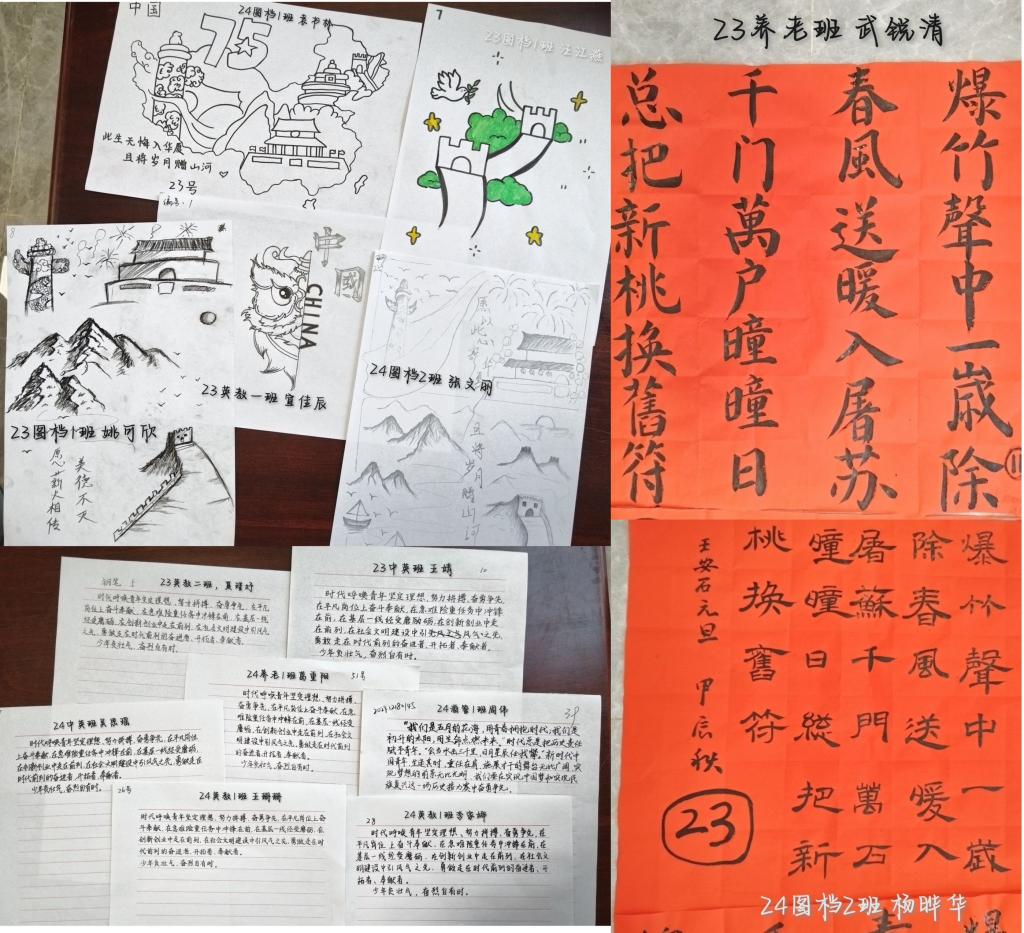 中国
24图档1班 袁书林
75
此生无悔入华夏
且将岁月赠山河
23号
编号:1
7
23图档1班 汪江燕
8
中國
CHINA
23英教一班 宜佳辰
23图档1班 姚可欣
美德不灭
愿薪火相传
24图档2班 张文丽
且将岁月赠山河
23养老班 武锐清
爆竹聲中一嵗除
春風送暖入屠苏
千门萬户曈曈日
总把新桃换舊符
11
钢笔 5 23英教二班,
时代呼唤青年坚定理想、努力拼搏、奋勇争先,在平凡
岗位上奋斗奉献、在急难险重任务中冲锋在前、在基层一线
经受磨砺、在创新创业中走在前列、在社会文明建设中引风气
之先,勇做走在时代前列的奋进者、开拓者、奉献者。
少年负壮气,奋烈自有时。
23中英班王婧 10
时代呼唤青年坚定理想、努力拼搏、奋勇争先,
在平凡岗位上奋斗奉献、在急难险重任务中冲锋
在前、在基层一线经受磨砺、在创新创业中走
在前列、在社会文明建设中引风气之先,
勇敢走在时代前列的奋进者、开拓者、奉献者。
少年负壮气,奋烈自有时。
24养老1班葛重阳 51号
时代呼唤青年坚定理想、努力拼搏、
奋勇争先,在平凡岗位上奋斗奉献、在急
难险重任务中冲锋在前、在基层一线经受
磨砺、在创新创业中走在前列、在社会文
明建设中引风气之先,勇做走在时代前列
的奋进者、开拓者、奉献者。
少年负壮气,奋烈自有时。
时代呼唤青年坚定理想、努力拼搏、奋勇争先,在平凡岗位
上奋斗奉献、在急难险重任务中冲锋在前、在基层一线经受磨砺、
在创新创业中走在前列、在社会文明建设中引风气之先,勇做走在
时代前列的奋进者、开拓者、奉献者。
少年负壮气,奋烈自有时。
39
“我们是五月的花海,用青春拥抱时代;我们是
初升的太阳,用生命点燃未来。”时代总是把历史责任
赋予青年。“会当水击三千里,自信人生二百年。”新时代中
26号
24英教1班 王姗姗
时代呼唤青年坚定理想、努力拼搏、奋勇争先,在平凡岗位上奋斗
奉献、在急难险重任务中冲锋在前、在基层一线经受磨砺、在
创新创业中走在前列、在社会文明建设中引风气之先,勇做走在时
代前列的奋进者、开拓者、奉献者。
少年负壮气,奋烈自有时。
28 24英教1班李家婷
时代呼唤青年坚定理想、努力拼搏、奋勇争先,在
平凡岗位上奋斗奉献、在急难险重任务中冲锋在前、在
基层一线经受磨砺、在创新创业中走在前列、在社会文
明建设中引风气之先,勇做走在时代前列的奋进者、开
拓者、奉献者。
少年负壮气,奋烈自有时。
爆竹聲中一嵗
除春風送暖入
屠蘇千門萬石
曈曈日縂把新
桃换舊符
王安石元旦 甲辰秋
23
24图档2班 杨晔华